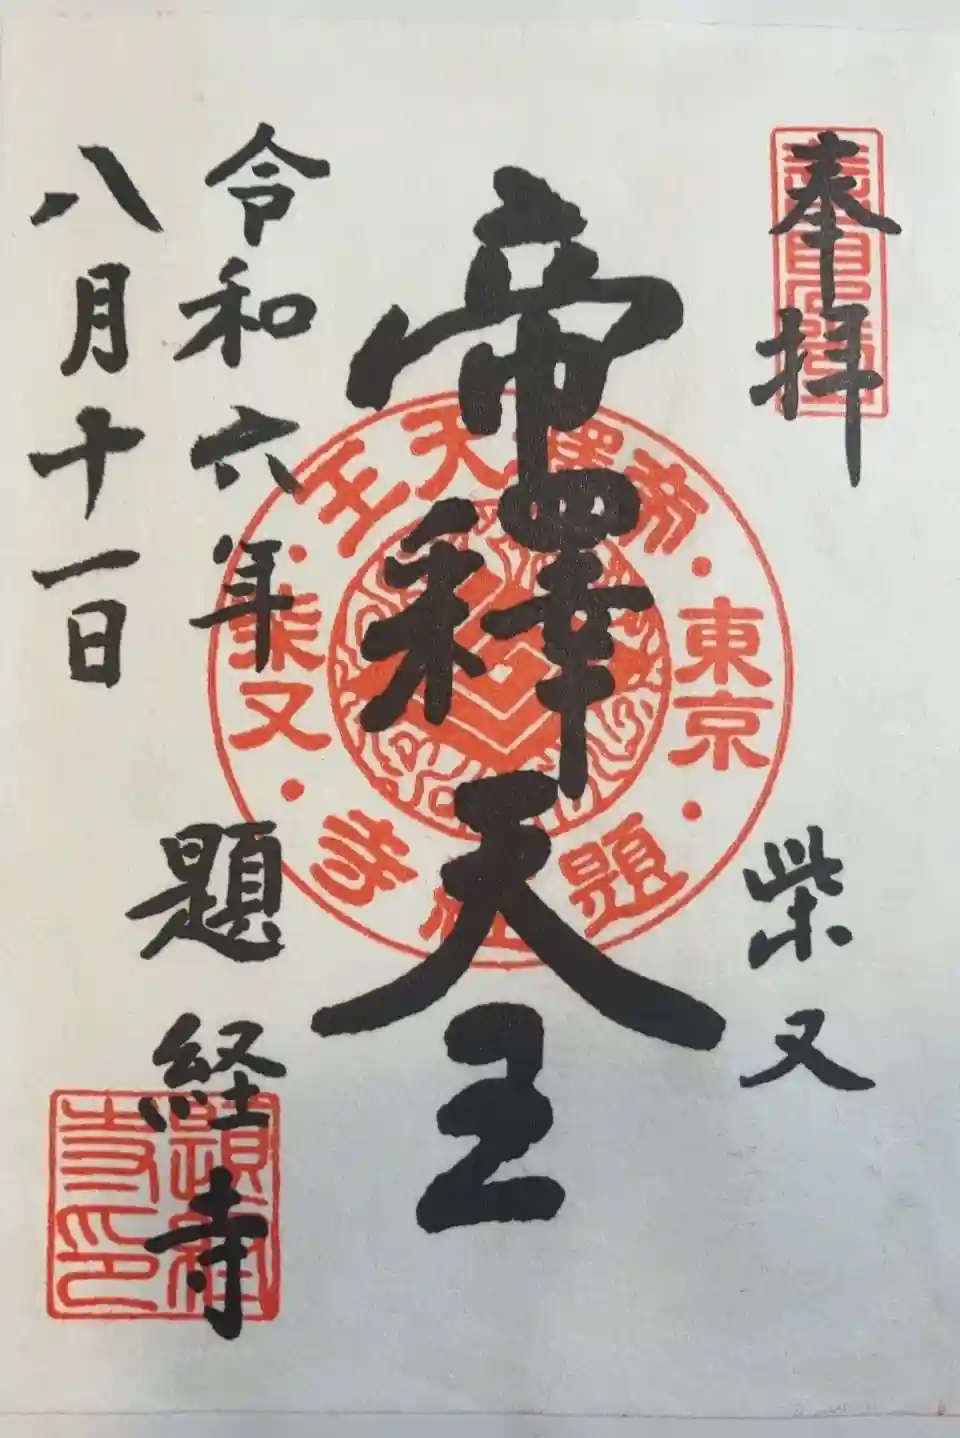 奉拝
柴又
帝釋天王
令和六年
八月十一日
題経寺
帝釋天王
東京
柴又
題経寺
題経寺印